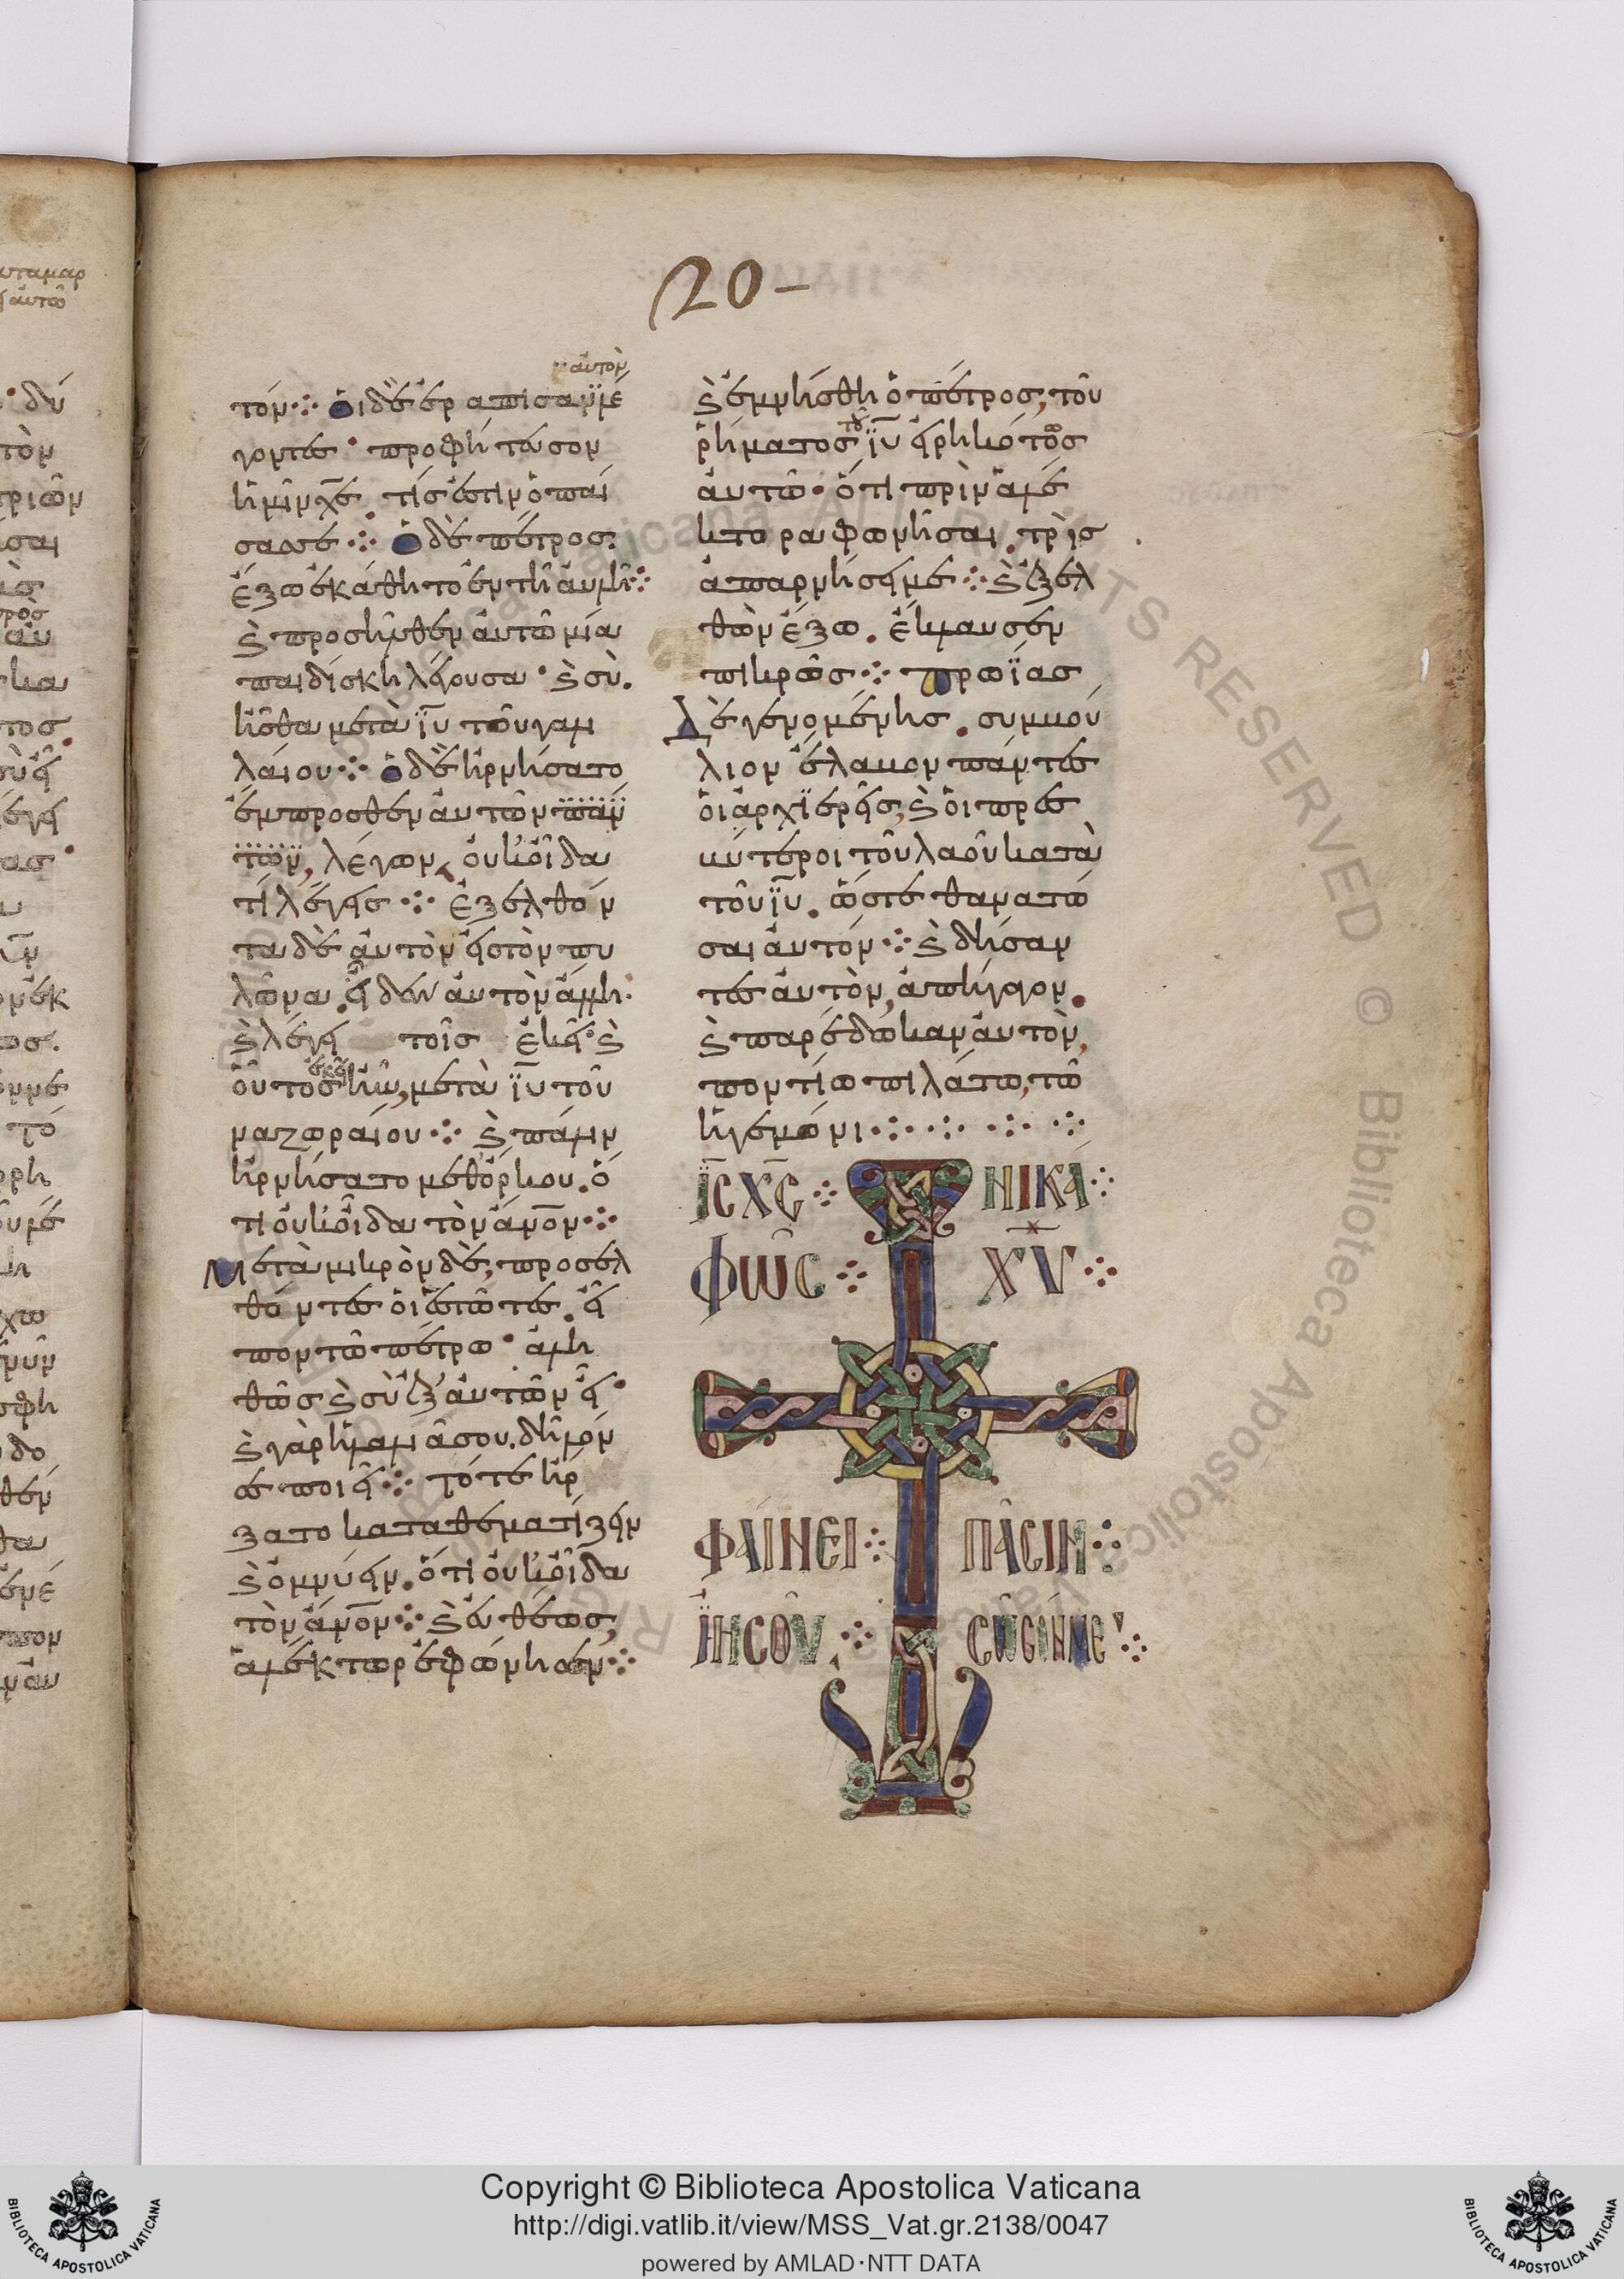 20–
αὐτὸν
τόν· οἱ δὲ ἐραπισαν λέ
γοντες· προφήτευσον
ἡμῖν χε· τίς ἐστιν ὁ παί
σας σε· ὁ δὲ πέτρος·
ἔξω ἐκάθητο ἐν τῆ αὐλῆ·
καὶ προσῆλθεν αὐτῶ μία
παιδίσκη λέγουσα· καὶ σὺ
ἦσθα μετὰ ιυ τοῦ γαλι
λαίου· ὁ δὲ ἠρνήσατο
ἔμπροσθεν αὐτῶν πάν
των, λέγων, οὐκ οἶδα
τί λέγεις· ἐξελθόν
τα δὲ αὐτὸν εἰς τὸν πυ
λῶνα. εἶδεν αὐτὸν ἄλλη·
καὶ λέγει τοῖς ἐκεῖ· καὶ
ἐκεῖ
οὗτος ἦν, μετὰ ιυ τοῦ
ναζωραίου· καὶ πάλιν
ἠρνήσατο μεθ' ὅρκου. ὅ
τι οὐκ οἶδα τὸν ανον·
μετὰ μικρὸν δὲ, προσελ
θόντες οἱ ἑστῶτες. εἶ
πον τῶ πέτρω· ἀλη
θῶς καὶ σὺ ἐξ αὐτῶν εἶ·
καὶ γὰρ ἡ λαλιά σου. δῆλόν
σε ποιεῖ· τότε ἤρ
ξατο καταθεματίζειν
καὶ ὀμνύειν. ὅτι οὐκ οἶδα
τὸν ανον· καὶ εὐθέως,
ἀλέκτωρ ἐφώνησεν·
καὶ ἐμνήσθη ὁ πέτρος, τοῦ
τοῦ
ῥήματος ιυ εἰρηκότος
αὐτῶ· ὅτι πρὶν ἀλέ
κτορα φωνῆσαι, τρὶς
ἀπαρνήση με· καὶ ἐξελ
θὼν ἔξω. ἔκλαυσεν
πικρῶς· πρωΐας
δὲ γενομένης. συμβού
λιον ἔλαβον πάντες
οἱ ἀρχιερεῖς, καὶ οἱ πρεσ
βύτεροι τοῦ λαοῦ κατὰ
τοῦ ιυ. ὥστε θανατῶ
σαι αὐτόν· καὶ δήσαν
τες αὐτὸν, ἀπήγαγον.
καὶ παρέδωκαν αὐτὸν,
ποντίω πιλάτω, τῶ
ἡγεμόνι·
ΙC ΧC ΝΙΚΑ
ΦΩC ΧΥ
ΦΑΙΝΕΙ ΠΑCΙΝ
ΙΗCΟΥ CΩCΟΝ ΜΕ
Copyright © Biblioteca Apostolica Vaticana
http://digi.vatlib.it/view/MSS_Vat.gr.2138/0047
powered by AMLAD·NTT DATA
BIBLIOTECA APOSTOLICA VATICANA
BIBLIOTECA APOSTOLICA VATICANA